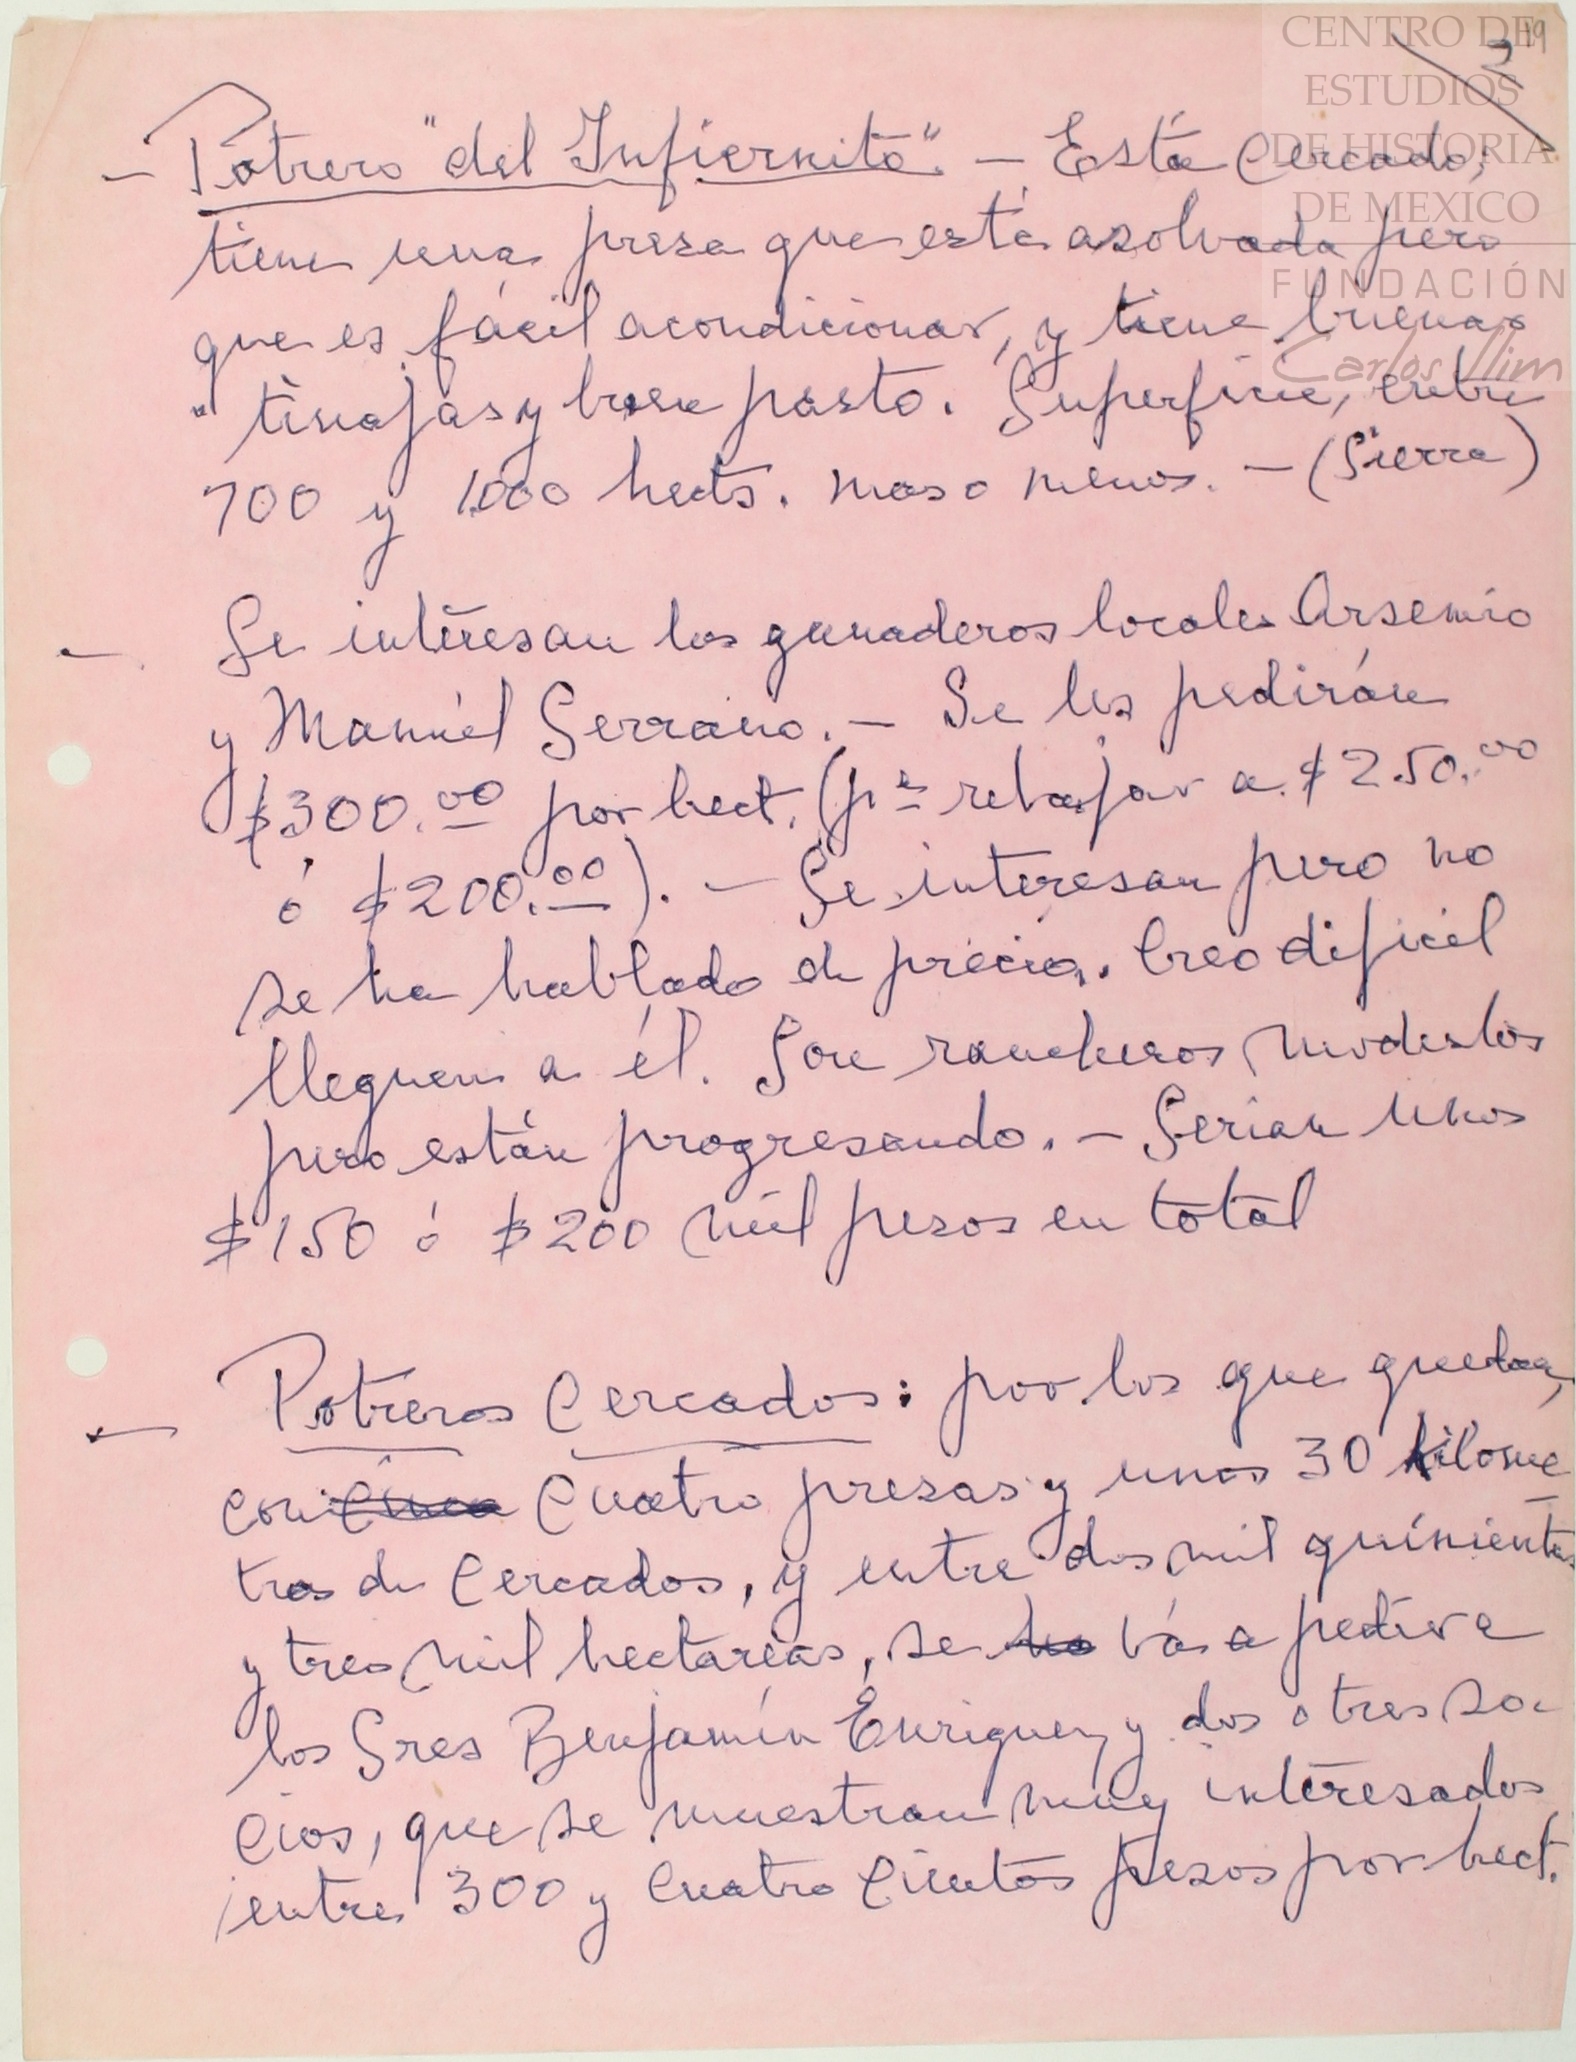 CENTRO DE
ESTUDIOS
DE HISTORIA
DE MEXICO
FUNDACIÓN
Carlos Slim
— Potrero "del Infiernito". — Está cercado;
tiene una presa que está asolvada pero
que es fácil acondicionar, y tiene buenas
tinajas y buen pasto. Superficie, entre
700 y 1000 hects. mas o menos. — (Sierra)
— Se interesan los ganaderos locales Arsenio
y Manuel Serrano. — Se les pedirán
$300.00 por hect. (pa rebajar a $250.00
ó $200.00). — Se interesan pero no
se ha hablado de precio. Creo dificil
lleguen a él. Son rancheros modestos
pero están progresando. — Serian unos
$150 ó $200 mil pesos en total
— Potreros Cercados: por los que quedan,
con cinco cuatro presas y unos 30 kilome
tros de cercados, y entre dos mil quinientas
y tres mil hectareas, se ha vá a pedir a
los Sres Benjamín Enriquez y dos o tres so-
cios, que se muestran muy interesados
entre 300 y cuatro cientos pesos por hect.